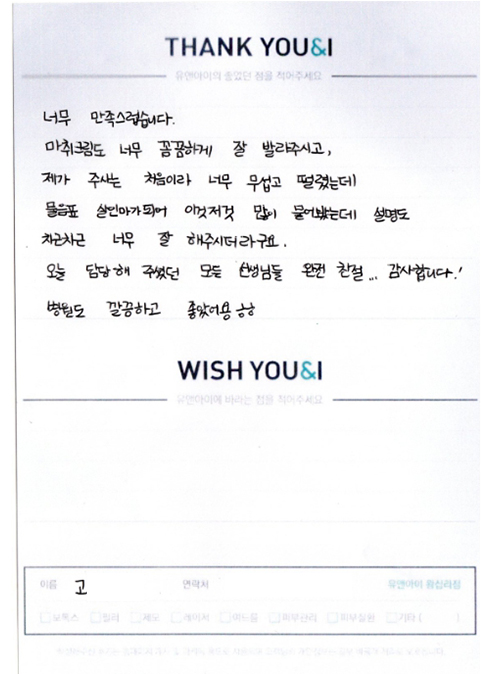 THANK YOU&I
유앤아이의 좋았던 점을 적어주세요
너무 만족스럽습니다.
마취크림도 너무 꼼꼼하게 잘 발라주시고,
제가 주사는 처음이라 너무 무섭고 떨렸는데
물음표 살인마가 되어 이것저것 많이 물어봤는데 설명도
차근차근 너무 잘 해주시더라구요.
오늘 담당해 주셨던 모든 선생님들 완전 친절... 감사합니다.!
병원도 깔끔하고 좋았어용 ㅎㅎ
WISH YOU&I
유앤아이에 바라는 점을 적어주세요
이름 고 연락처 유앤아이 왕십리점
보톡스 필러 제모 레이저 여드름 피부관리 피부질환 기타 ( )